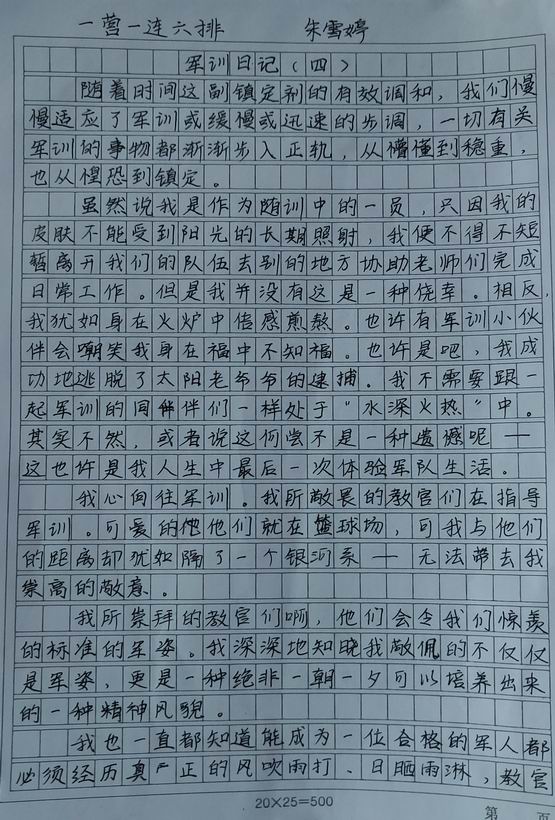 一营一连六排 朱雪婷
军训日记(四)
随着时间这副镇定剂的有效调和,我们慢
慢适应了军训或缓慢或迅速的步调,一切有关
军训的事物都渐渐步入正轨,从懵懂到稳重,
也从惶恐到镇定。
虽然说我是作为随训中的一员,只因我的
皮肤不能受到阳光的长期照射,我便不得不短
暂离开我们的队伍去别的地方协助老师们完成
日常工作。但是我并没有这是一种侥幸。相反,
我犹如身在火炉中倍感煎熬。也许有军训小伙
伴会嘲笑我身在福中不知福。也许是吧,我成
功地逃脱了太阳老爷爷的逮捕。我不需要跟一
起军训的同伴们一样处于“水深火热”中。
其实不然,或者说这何尝不是一种遗憾呢——
这也许是我人生中最后一次体验军队生活。
我心向往军训。我所敬畏的教官们在指导
军训。可爱的他们就在篮球场,可我与他们
的距离却犹如隔了一个银河系——无法带去我
崇高的敬意。
我所崇拜的教官们啊,他们会令我们惊羡
的标准的军姿。我深深地知晓我敬佩的不仅仅
是军姿,更是一种绝非一朝一夕可以培养出来
的一种精神风貌。
我也一直都知道能成为一位合格的军人都
必须经历真正的风吹雨打、日晒雨淋,教官
20×25=500
第 页